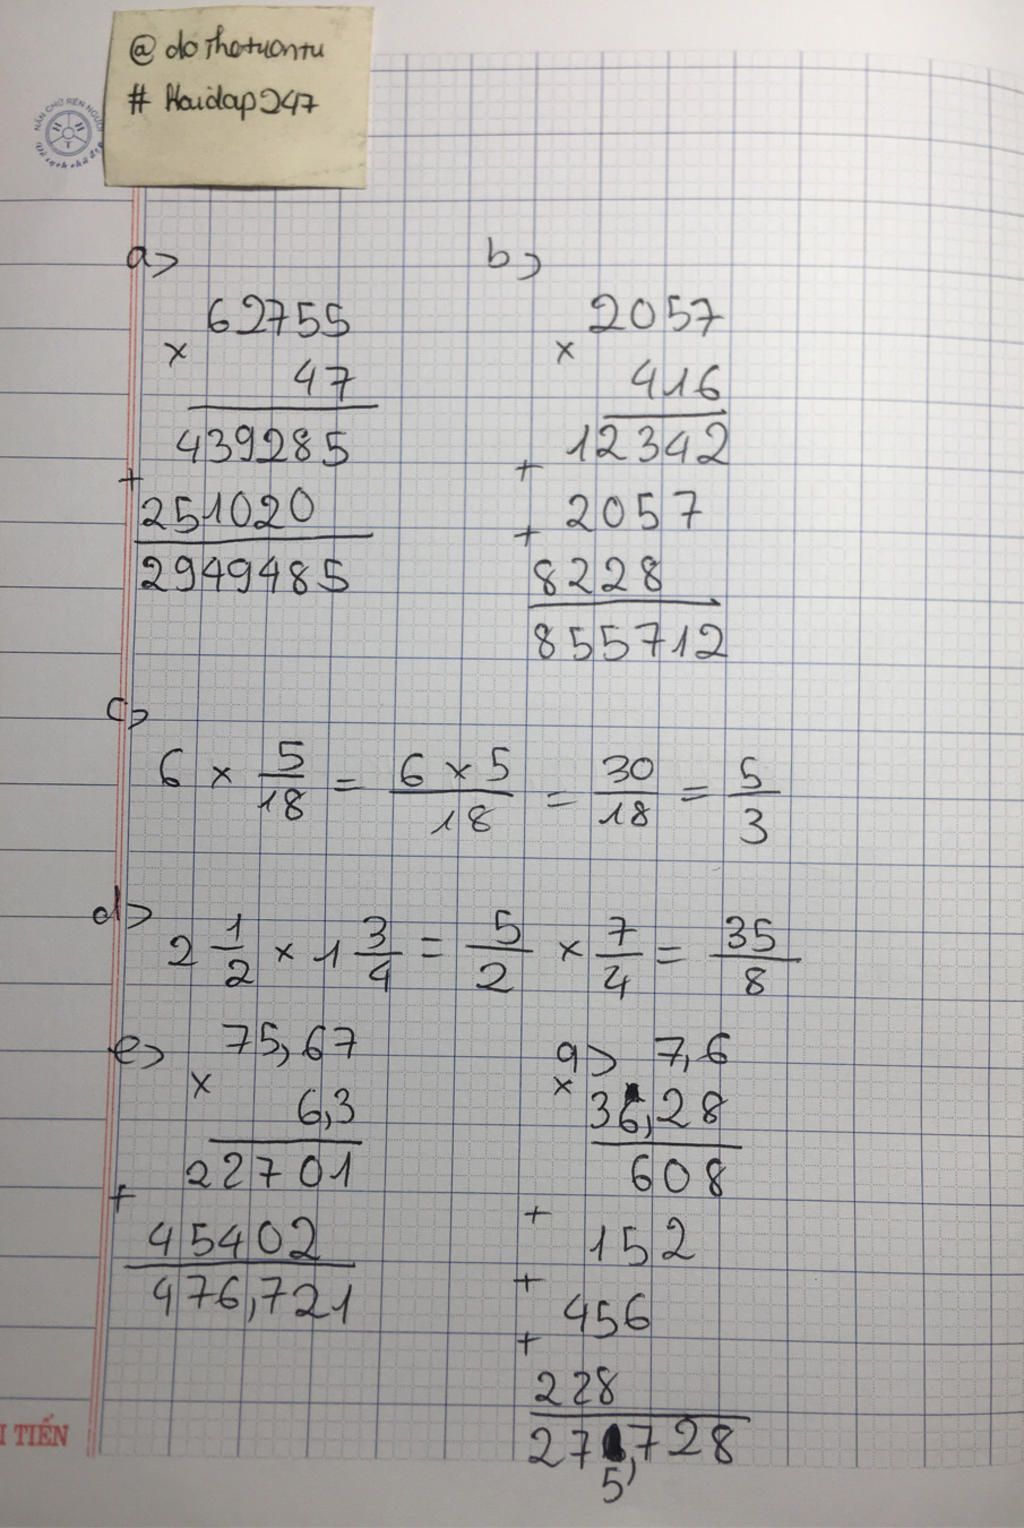 @ dothatuantu
# Hoidap247
NẮN CHỮ RÈN NGƯỜI
a>
62755
×
47
439285
+
251020
2949485
b>
2057
×
416
12342
+
2057
+
8228
855712
c>
6 × 5/18 = 6 × 5/18 = 30/18 = 5/3
d>
2 1/2 × 1 3/4 = 5/2 × 7/4 = 35/8
e>
75,67
×
6,3
22701
+
45402
476,721
g> 7,6
×
36,28
608
+
152
+
456
+
228
275,728
I TIẾN